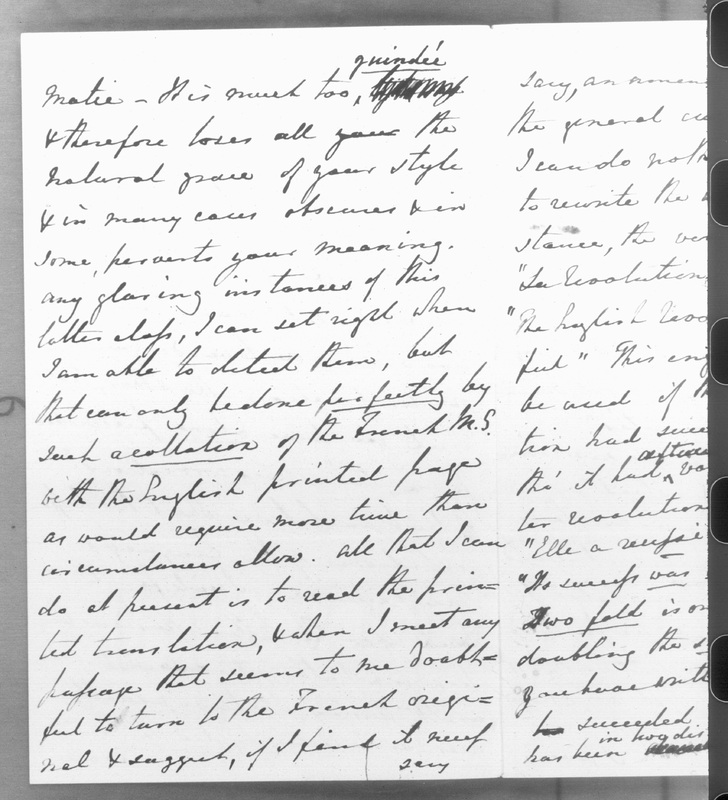 guindée
matie - It is much too,
& therefore loses all your the
natural grace of your style
& in many cases obscures & in
some, perverts your meaning.
any glaring instances of this
latter class, I can set right when
I am able to detect them, but
that can only be done perfectly by
such a collation of the French M.S.
with the English printed page
as would require more time than
circumstances allow. All that I can
do at present is to read the prin=
ted translation, & when I meet any
passage that seems to me doubt=
ful to turn to the French origi=
nal & suggest, if I find it necess
sary
sary, an
the general
I can do
to rewrite the
stance, the
"La Revolution
"The English
fied" This
be used if
tion had
tho' it had
ter revolution
"Elle a
"Its success was
Two fold is
doubling the
you have
succeeded
in two
has been